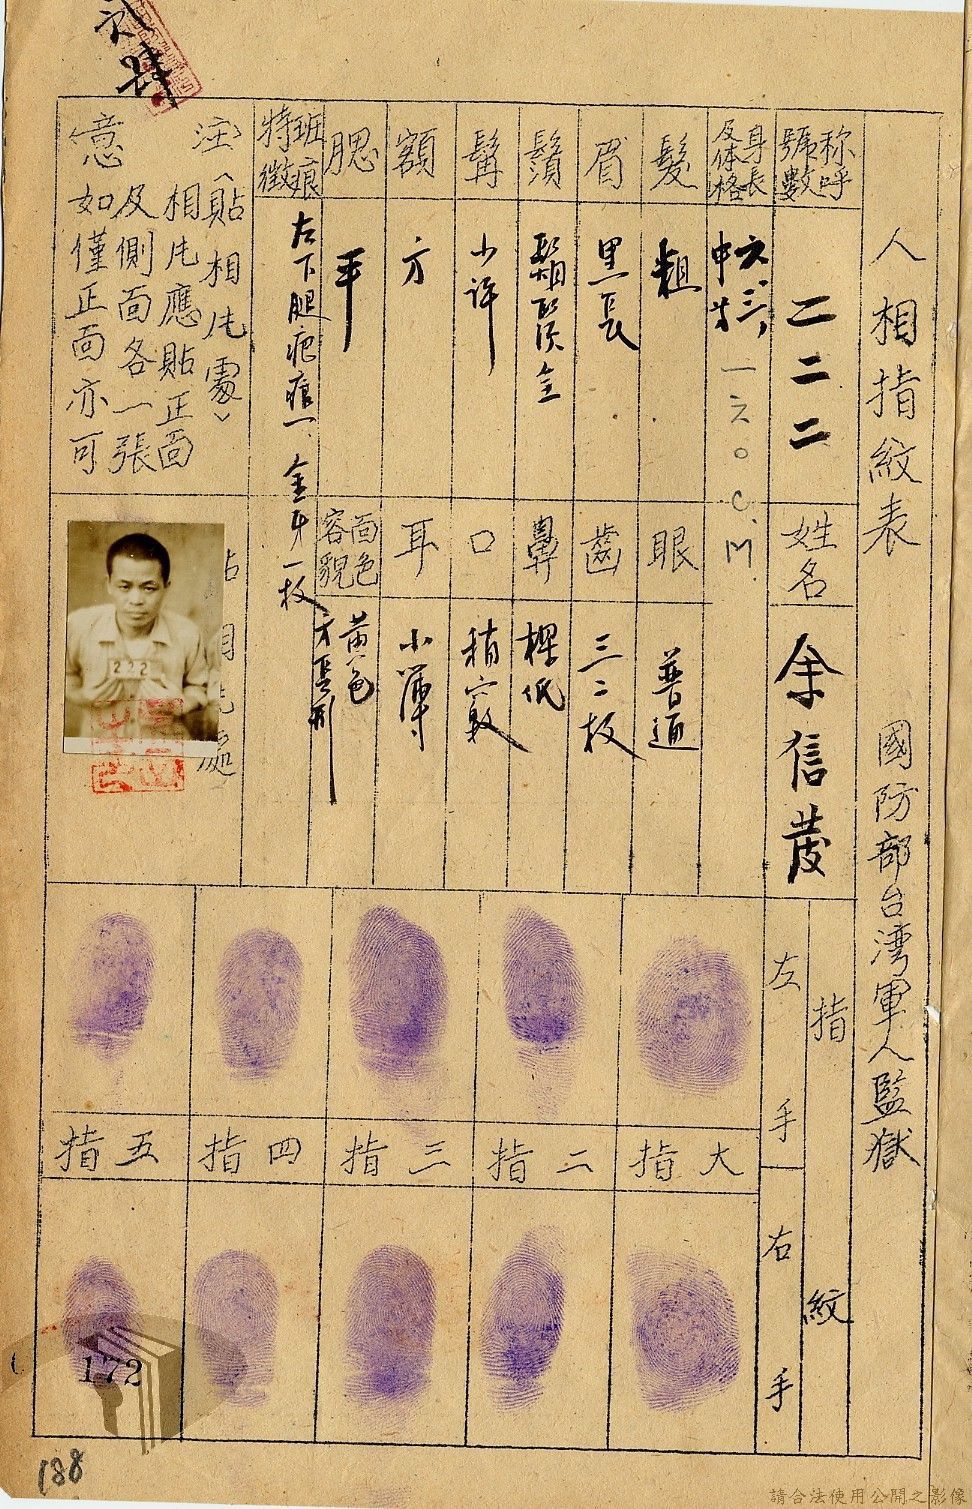 人相指紋表
國防部台灣軍人監獄
称呼號數
二二二
姓名
余信茂
身長及体格
六、三、
中等
一六〇C.M
髮
粗
眼
普通
眉
黑長
齒
三二枚
鬚
鼻
低
髯
少許
口
稍寬
額
方
耳
小薄
腮
平
面色容貌
黃色
方長形
特徵
左下腿疤痕一、金牙一枚
注意
(貼相片處)
相片應貼正面
及側面各一張
如僅正面亦可
222
指紋
左手
右手
大指
二指
三指
四指
五指
172
188
請合法使用公開之影像